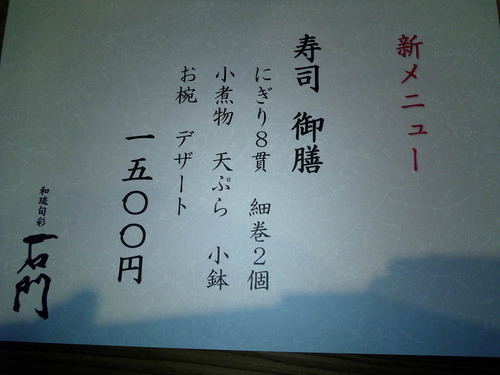 新メニュー
寿司 御膳
にぎり8貫 細巻2個
小煮物 天ぷら 小鉢
お椀 デザート
一五〇〇円
和琉旬彩
石門